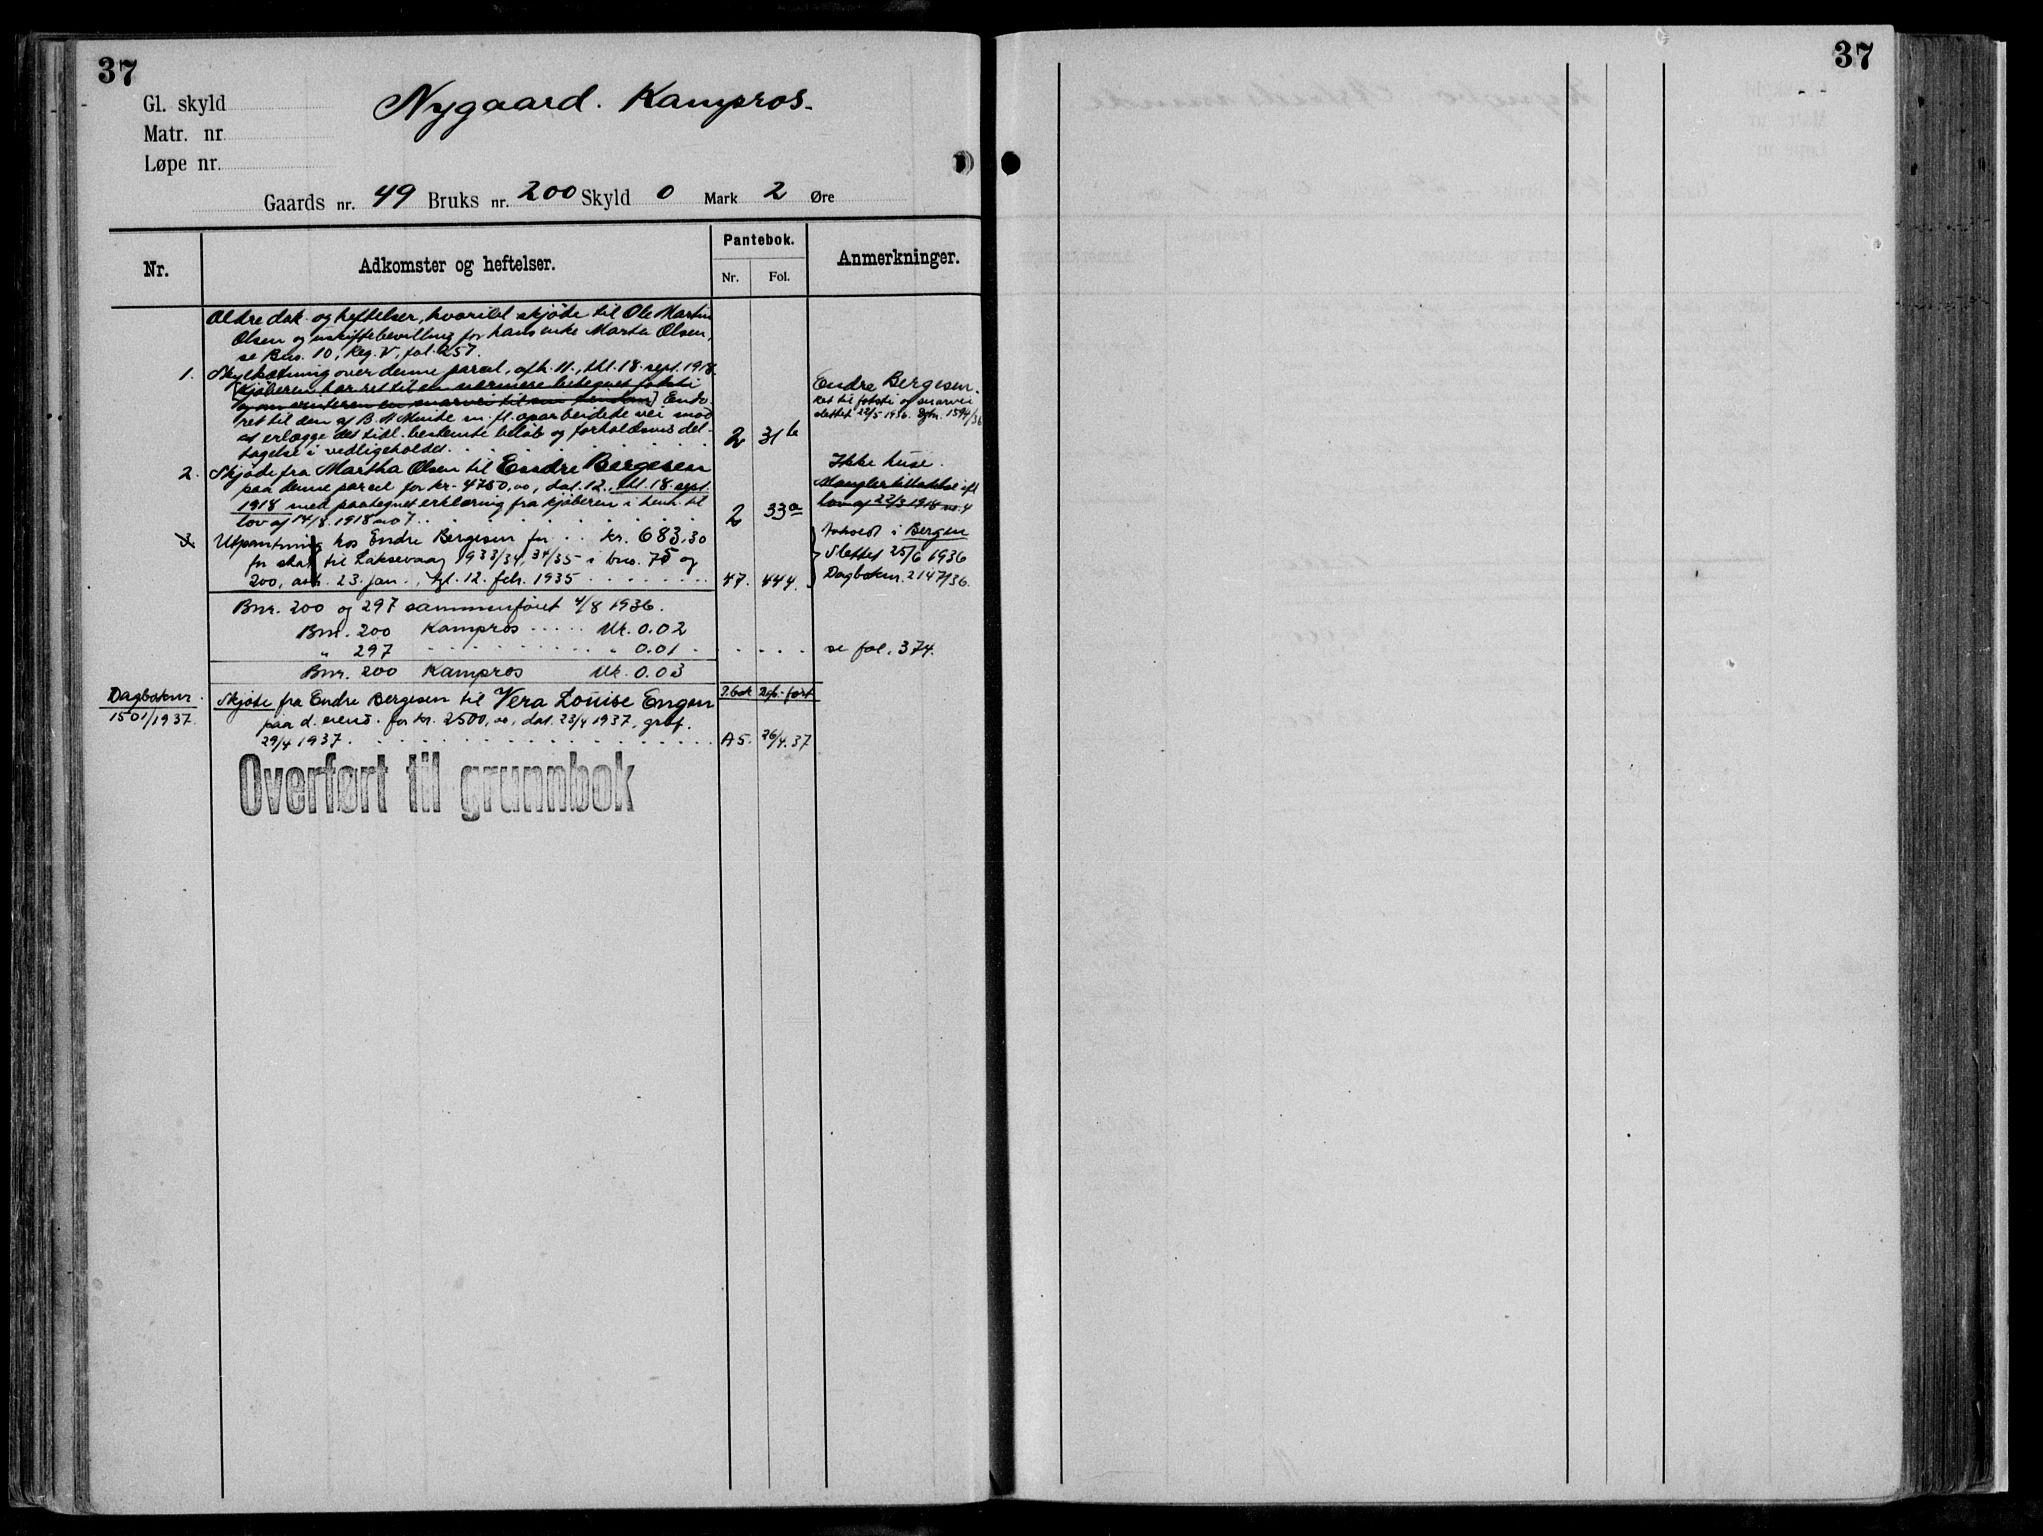 37
37
Gl. skyld
Nygaard. Kampros.
Matr. nr
Løpe nr.
Gaards nr. 49 Bruks nr. 200 Skyld 0 Mark 2 Øre
Nr.
Adkomster og heftelser.
Pantebok.
Nr.
Fol.
Anmerkninger.
Ældre dok. og heftelser, hvoriblt skjøte til Ole Martin
Olsen og uskiftebevilling for hans enke Marta Olsen,
se Bno. 10, Reg. V, fol. 257.
1. Skyldsætning over denne parcel, afh. 11., thl. 18. sept. 1918.
(Kjøberen har ret til en nærmere betegnet fotsti
og en snarvei til sin eiendom)
ret til den af B. A. Mente m. fl. oparbeidete vei mod
at erlægge det tidl. bestemte beløb og forholdsvis del-
tagelse i vedligeholdet. 2 31b
Endre Bergesen.
Ret til fotsti og snarvei
slettet 22/5 1936. Dgbn. 1594/36
2. Skjøde fra Martha Olsen til Endre Bergesen
paa denne parcel for kr. 4750,00, dat. 12., thl. 18. sept.
1918 med paategnet erklæring fra kjøberen i henh. til
lov af 14/8 1918 no 7. 2 33a
Ikke huse.
Mangler tillatelse ifl
lov af 22/3 1918 no. 4
3. Utpantning hos Endre Bergesen for kr. 683,30
for skat til Laksevaag 1933/34, 34/35 i bno. 75 og
200, avh. 23. jan., tgl. 12. febr. 1935 47. 444.
Avholdt i Bergen
Slettet 25/6 1936
Dagboknr. 2147/36.
Bnr. 200 og 297 sammenføiet 4/8 1936.
Bnr. 200 Kampros Mk. 0.02
" 297 " 0.01 se fol. 374.
Bnr. 200 Kampros Mk. 0.03
Dagboknr.
1501/1937.
Skjøte fra Endre Bergesen til Vera Louise Engen
paa d. eiend. for kr. 2500,00, dat. 23/4 1937, grbf.
29/4 1937. A5. 26/4.37
P.bok Dgb.-ført
Overført til grunnbok